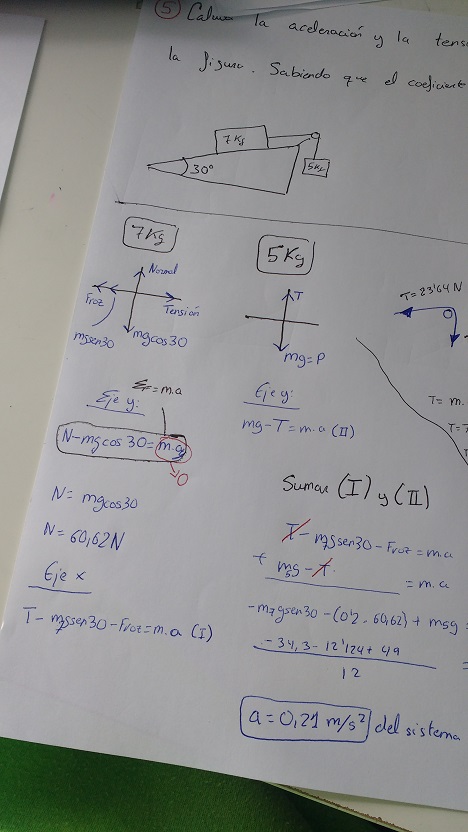 5 Calcular la aceleración y la tens
la figura. Sabiendo que el coeficiente
7Kg
30°
5Kg
7Kg
Normal
Froz
Tensión
mgsen30
mgcos30
5Kg
T
mg=P
T=23'64 N
T= m.
T=
ΣF=m.a
Eje y:
N-mgcos30=m.a
0
N= mgcos30
N= 60,62N
Eje x
T-m₇gsen30-Froz=m.a (I)
Eje y:
mg-T=m.a (II)
Sumar (I) y (II)
T-m₇gsen30-Froz=m.a
+ m₅g-T = m.a
-m₇gsen30-(0'2·60,62)+m5g =
-34,3-12'124+49
12
a=0,21 m/s² del sistema